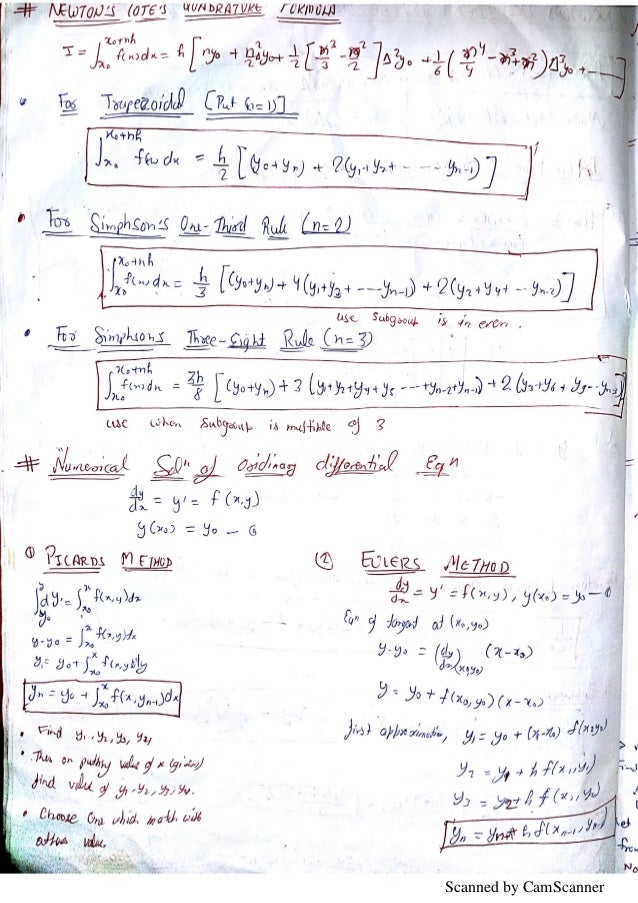 # NEWTON'S COTE'S QUADRATURE FORMULA
I = ∫_{x₀}^{x₀+nh} f(x)dx = h [ny₀ + n²/2 Δy₀ + 1/2 [n³/3 - n²/2] Δ²y₀ + 1/6 (n⁴/4 - n³ + n²) Δ³y₀ + ----]
• For Trapezoidal [Put (n=1)]
∫_{x₀}^{x₀+nh} f(x) dx = h/2 [(y₀+yₙ) + 2(y₁+y₂+ - ---- yₙ₋₁)]
• For Simphson's One-Third Rule (n=2)
∫_{x₀}^{x₀+nh} f(x)dx = h/3 [(y₀+yₙ) + 4(y₁+y₃+ ----yₙ₋₁) + 2(y₂+y₄+ --- yₙ₋₂)]
use subgroup is in even.
• For Simphsons Three-Eight Rule (n=3)
∫_{x₀}^{x₀+nh} f(x)dx = 3h/8 [(y₀+yₙ)+3(y₁+y₂+y₄+y₅ ---+yₙ₋₂+yₙ₋₁)+2(y₃+y₆+y₉--yₙ₋₃)]
use when subgroup is multiple of 3
# Numerical Solⁿ of Ordinary differential Eqⁿ
dy/dx = y' = f(x,y)
y(x₀) = y₀ - ①
① PICARDS METHOD
∫_{y₀}^{y} dy = ∫_{x₀}^{x} f(x,y)dx
y-y₀ = ∫_{x₀}^{x} f(x,y)dx
y₁ = y₀+∫_{x₀}^{x} f(x,y₀)dy
yₙ = y₀ + ∫_{x₀}^{x} f(x,yₙ₋₁)dx
• Find y₁, y₂, y₃, y₄
• Then on putting value of x (given)
find value of y₁, y₂, y₃, y₄.
• Choose One which match with
value
② EULERS METHOD
dy/dx = y' = f(x,y), y(x₀) = y₀ - ①
Eqⁿ of tangent at (x₀,y₀)
y-y₀ = (dy/dx)(x₀,y₀) (x-x₀)
y = y₀ + f(x₀,y₀)(x-x₀)
first approximation, y₁ = y₀ + (x-x₀) f(x₀,y₀)
y₂ = y₁ + h f(x₁,y₁)
y₃ = y₂+h f(x₂,y₂)
Scanned by CamScanner